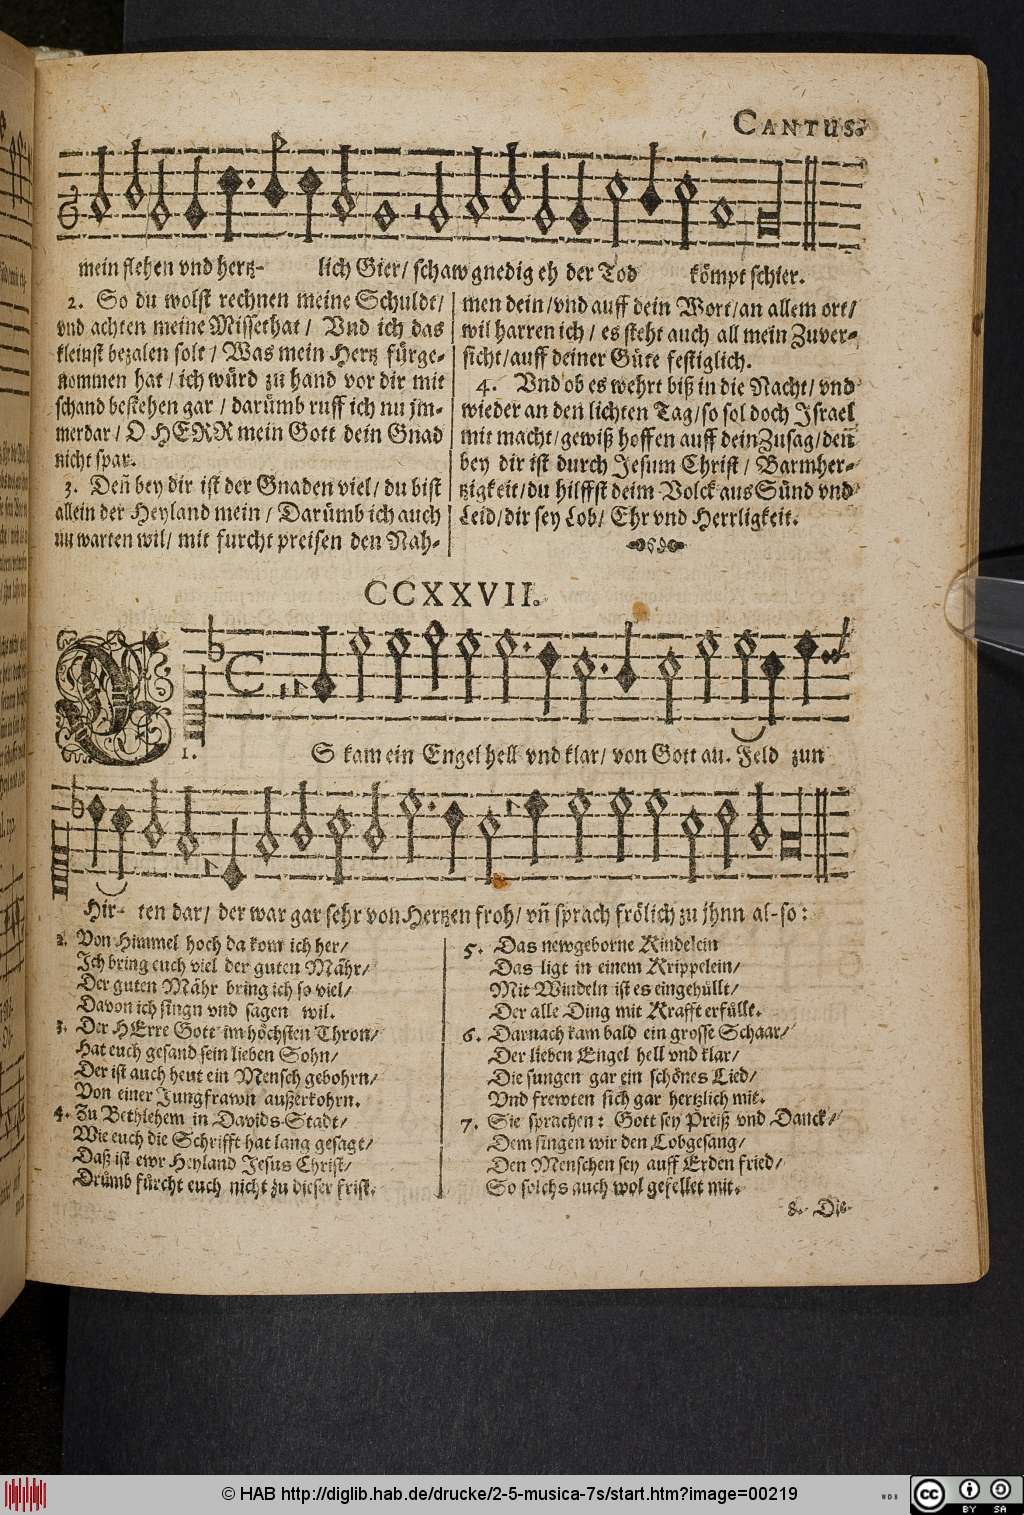 CANTUS.
mein flehen vnd hertz- lich Gier/ schaw gnedig eh der Tod kömpt schier.
2. So du wolst rechnen meine Schuldt/
vnd achten meine Missethat/ Vnd ich das
kleinst bezalen solt/ Was mein Hertz fürge-
nommen hat/ ich würd zu hand vor dir mit
schand bestehen gar/ darümb ruff ich nu jm-
merdar/ O HERR mein Gott dein Gnad
nicht spar.
3. Deñ bey dir ist der Gnaden viel/ du bist
allein der Heyland mein/ Darümb ich auch
nu warten wil/ mit furcht preisen den Nah-
men dein/ vnd auff dein Wort/ an allem ort/
wil harren ich/ es steht auch all mein Zuver-
sicht/ auff deiner Güte festiglich.
4. Vnd ob es wehrt biß in die Nacht/ vnd
wieder an den lichten Tag/ so sol doch Israel
mit macht/ gewiß hoffen auff dein Zusag/ deñ
bey dir ist durch Jesum Christ/ Barmher-
tzigkeit/ du hilffst deim Volck aus Sünd vnd
Leid/ dir sey Lob/ Ehr vnd Herrligkeit.
CCXXVII.
1. ES kam ein Engel hell vnd klar/ von Gott au. Feld zun
Hir- ten dar/ der war gar sehr von Hertzen froh/ vñ sprach frölich zu jhnn al-so:
2. Von Himmel hoch da kom ich her/
Ich bring euch viel der guten Mähr/
Der guten Mähr bring ich so viel/
Davon ich singn vnd sagen wil.
3. Der HErre Gott im höchsten Thron/
Hat euch gesand sein lieben Sohn/
Der ist auch heut ein Mensch gebohrn/
Von einer Jungfrawn außerkohrn.
4. Zu Bethlehem in Davids-Stadt/
Wie euch die Schrifft hat lang gesagt/
Daß ist ewr Heyland Jesus Christ/
Drümb fürcht euch nicht zu dieser frist.
5. Das newgeborne Kindelein
Das ligt in einem Krippelein/
Mit Windeln ist es eingehüllt/
Der alle Ding mit Krafft erfüllt.
6. Darnach kam bald ein grosse Schaar/
Der lieben Engel hell vnd klar/
Die sungen gar ein schönes Lied/
Vnd frewten sich gar hertzlich mit.
7. Sie sprachen: Gott sey Preiß vnd Danck/
Dem singen wir den Lobgesang/
Den Menschen sey auff Erden fried/
So solchs auch wol gefellet mit.
8. Die
© HAB http://diglib.hab.de/drucke/2-5-musica-7s/start.htm?image=00219
WDB
CC BY SA